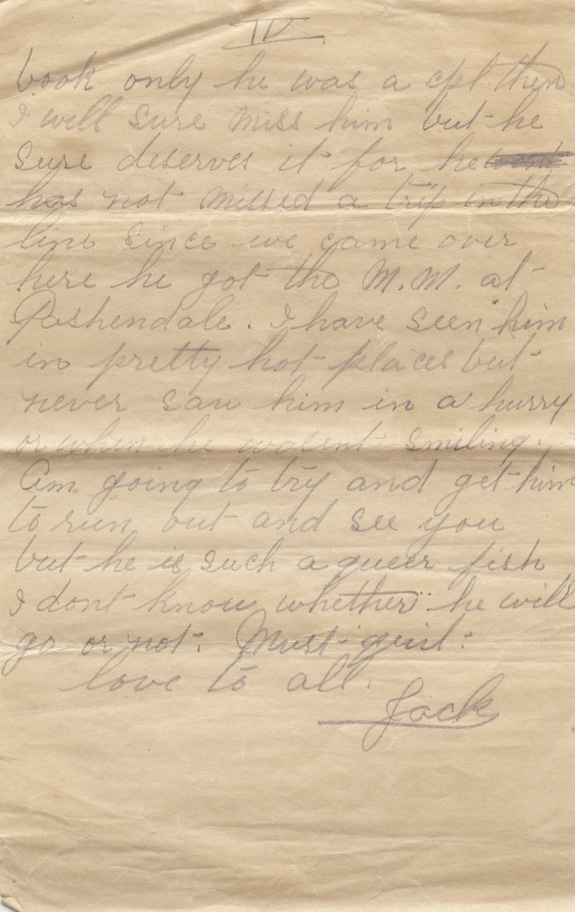 IV
book only he was a cpl. then
I will sure miss him but he
sure deserves it for he
has not missed a trip in the
line since we came over
here he got the M.M. at
Pashendale. I have seen him
in pretty hot places but
never saw him in a hurry
or when he wasent smiling.
Am going to try and get him
to run out and see you
but he is such a queer fish
I dont know whether he will
go or not. Must quit.
love to all.
Jack